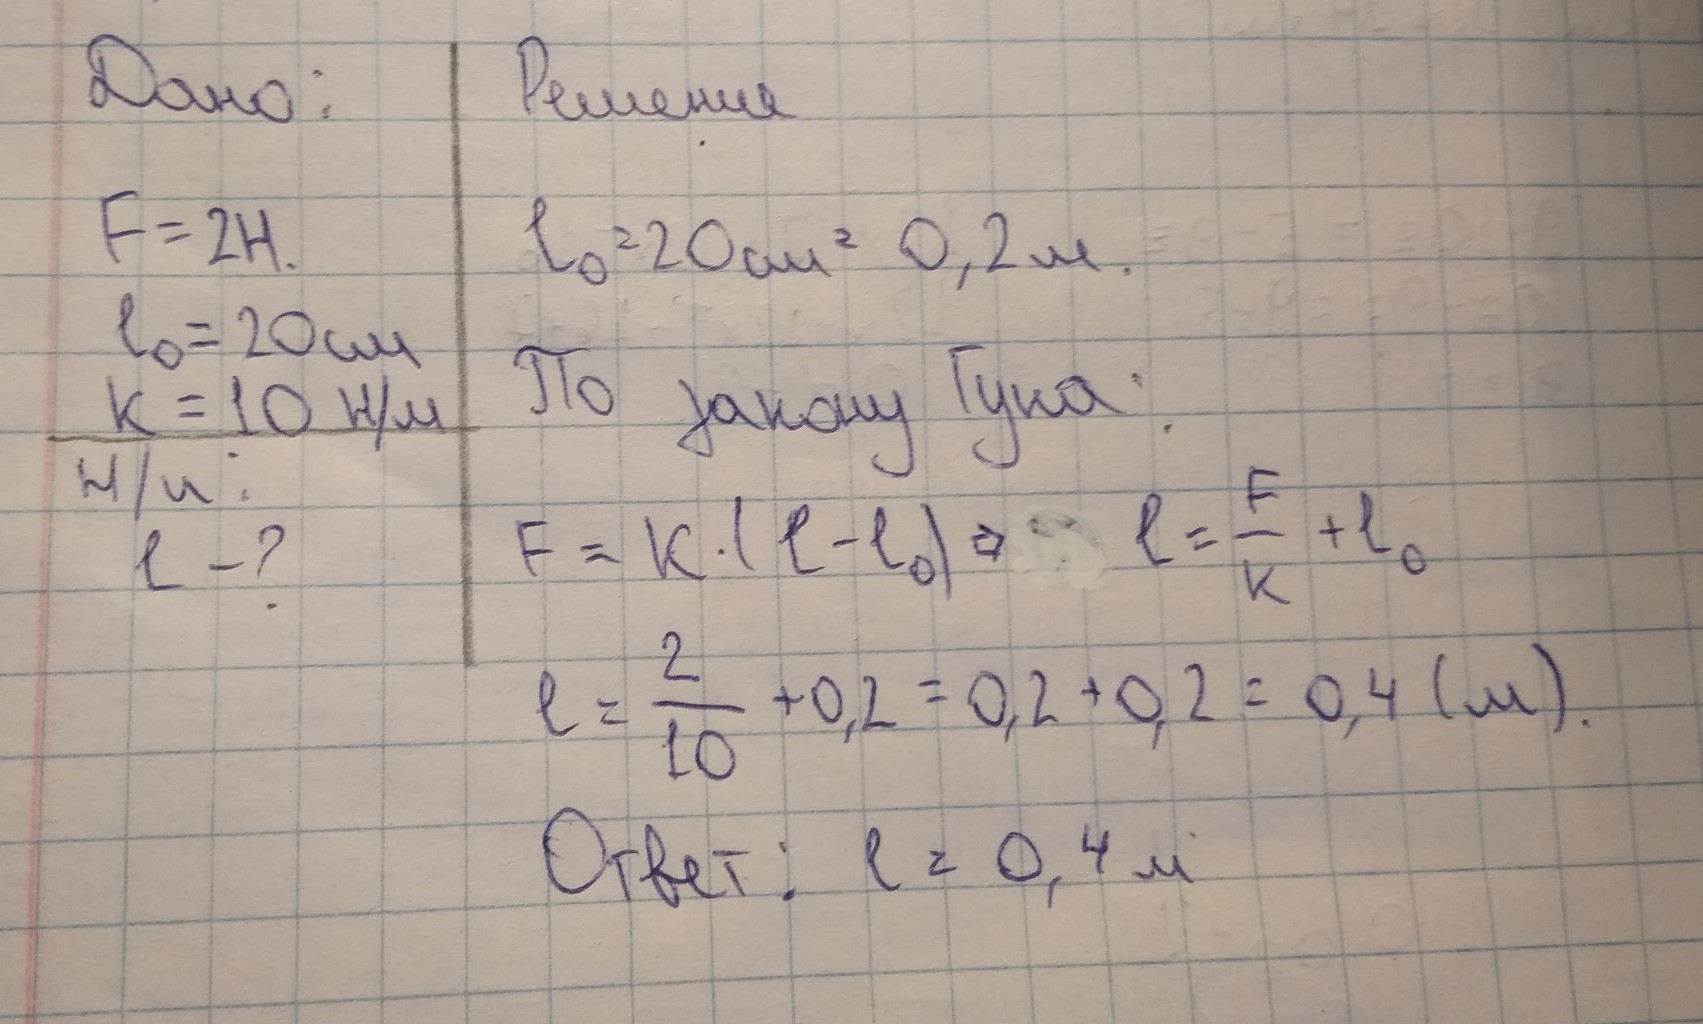 Дано:
F = 2Н.
l₀ = 20см
К = 10 Н/м
Н/и:
l - ?
Решения
l₀ = 20см = 0,2м.
По закону Гука:
F = К·(l - l₀) ⇒ l = F/К + l₀
l = 2/10 + 0,2 = 0,2 + 0,2 = 0,4 (м).
Ответ: l = 0,4 м